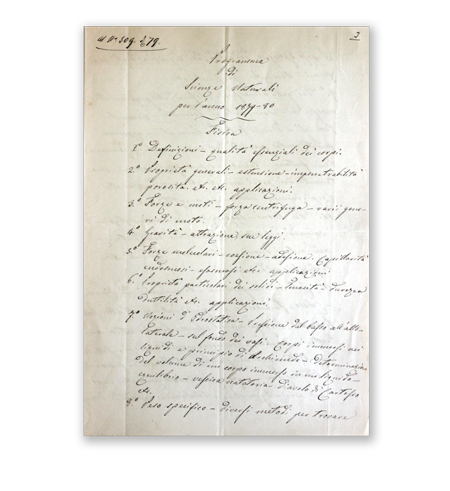 al N° 309. 2/79. 3
Programma
di
Scienze Naturali
per l'anno 1879-80
Fisica
1° Definizioni – qualità essenziali dei corpi.
2° Proprietà generali – estensione – impenetrabilità
porosità etc. etc. applicazioni.
3° Forze e moti – forza centrifuga – vari gene-
ri di moto.
4° Gravità – attrazione sue leggi.
5° Forze molecolari – coesione – adesione. Capillarità
endosmosi – etc. applicazioni
6° Proprietà particolari dei solidi – tenacità durezza
duttilità etc. applicazioni.
7° Nozioni d'Idrostatica – Pressione dal basso all'alto
laterale – sul fondo dei vasi. Corpi immersi nei
liquidi – principio di Archimede – determinazione
del volume di un corpo immerso in un liquido –
equilibrio – vessica natatoria diavolo di Cartesio
etc.
8° Peso specifico – diversi metodi per trovare